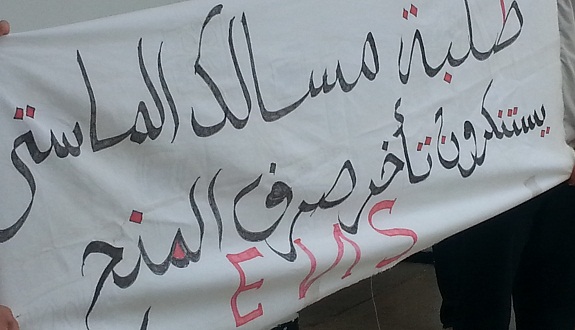 طلبة مسالك الماستر
يستنكرون تأخر صرف المنح